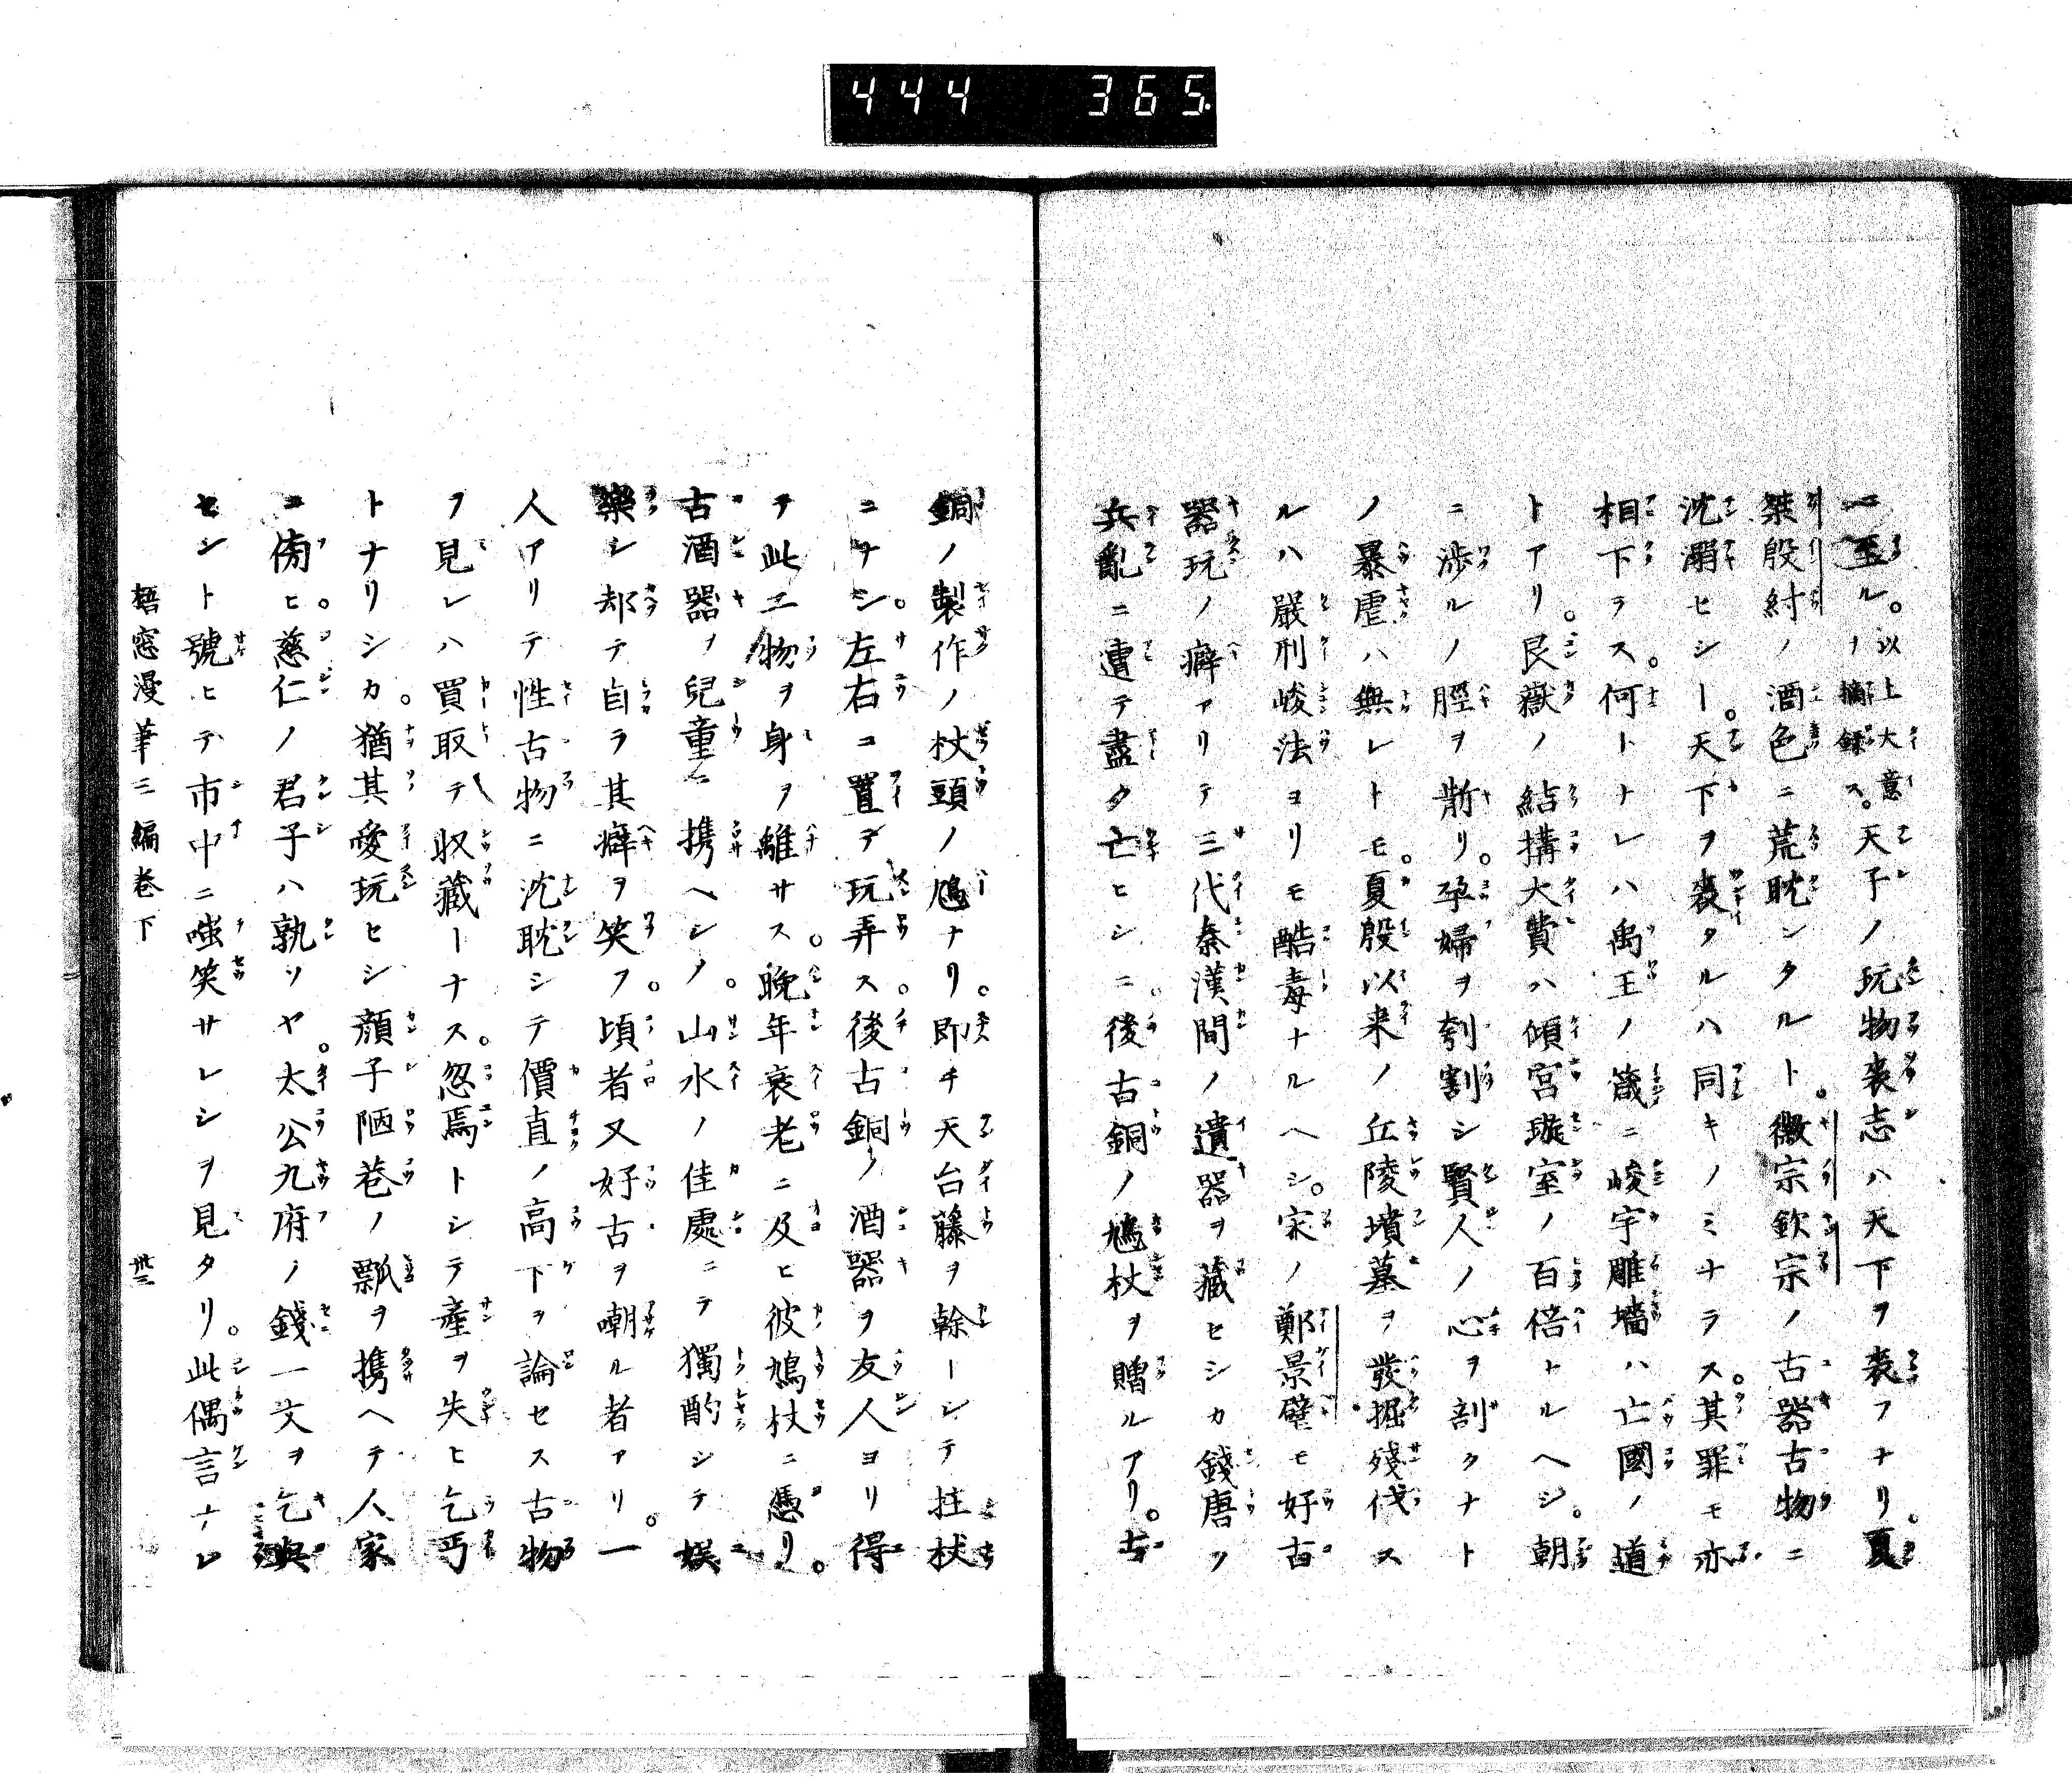 444 365.
ニ至ル。以上大意ノ摘録ス。天子ノ玩物喪志ハ天下ヲ喪フナリ。夏
桀殷紂ノ酒色ニ荒耽シタルト。徽宗欽宗ノ古器古物ニ
沈溺セシヿ。天下ヲ喪タルハ同キノミナラス。其罪モ亦
相下ラス。何トナレハ禹王ノ箴ニ峻宇雕墻ハ亡國ノ道
トアリ。艮嶽ノ結搆大費ハ傾宮璇室ノ百倍トルヘシ。朝
ニ渉ルノ脛ヲ斮リ。孕婦ヲ刳割シ賢人ノ心ヲ剖クナト
ノ暴虐ハ無レトモ。夏殷以来ノ丘陵墳墓ヲ發掘殘伐ス
ルハ嚴刑峻法ヨリモ酷毒ナルヘシ。宋ノ鄭景璧モ好古
器玩ノ癖アリテ三代秦漢間ノ遺器ヲ藏セシカ錢唐ノ
兵亂ニ遭テ盡ク亡ヒシニ。後古銅ノ鳩杖ヲ贈ルアリ。古
銅ノ製作ノ杖頭ノ鳩ナリ。即チ天台藤ヲ榦ーシテ拄杖
ニナシ。左右コ置テ玩弄ス。後古銅ノ酒器ヲ友人ヨリ得
テ此二物ヲ身ヲ離サス。晩年衰老ニ及ヒ彼鳩杖ニ憑リ。
古酒器ヲ兒童ニ携ヘシメ。山水ノ佳處ニテ獨酌シテ娯
樂シ却テ自ラ其癖ヲ笑フ。頃者又好古ヲ嘲ル者アリ。一
人アリテ性古物ニ沈耽シテ價直ノ高下ヲ論セス古物
ヲ見レハ買取テ収藏ーナス。忽焉トシテ產ヲ失ヒ乞丐
トナリシカ。猶其愛玩ヒシ顔子陋巷ノ瓢ヲ携ヘテ人家
ニ傍ヒ。慈仁ノ君子ハ孰ソヤ。太公九府ノ錢一文ヲ乞與
セシト號ヒテ市中ニ嗤笑サレシヲ見タリ。此偶言ナレ
梧窓漫筆三編巻下 卅三